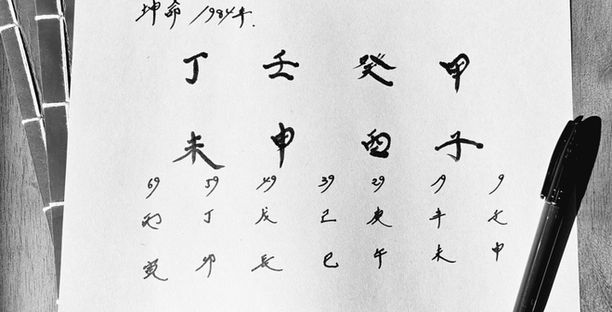 坤命 1984年.
丁 壬 癸 甲
未 申 酉 子
69 59 49 39 29 19 9
丙 丁 戊 己 庚 辛 壬
寅 卯 辰 巳 午 未 申